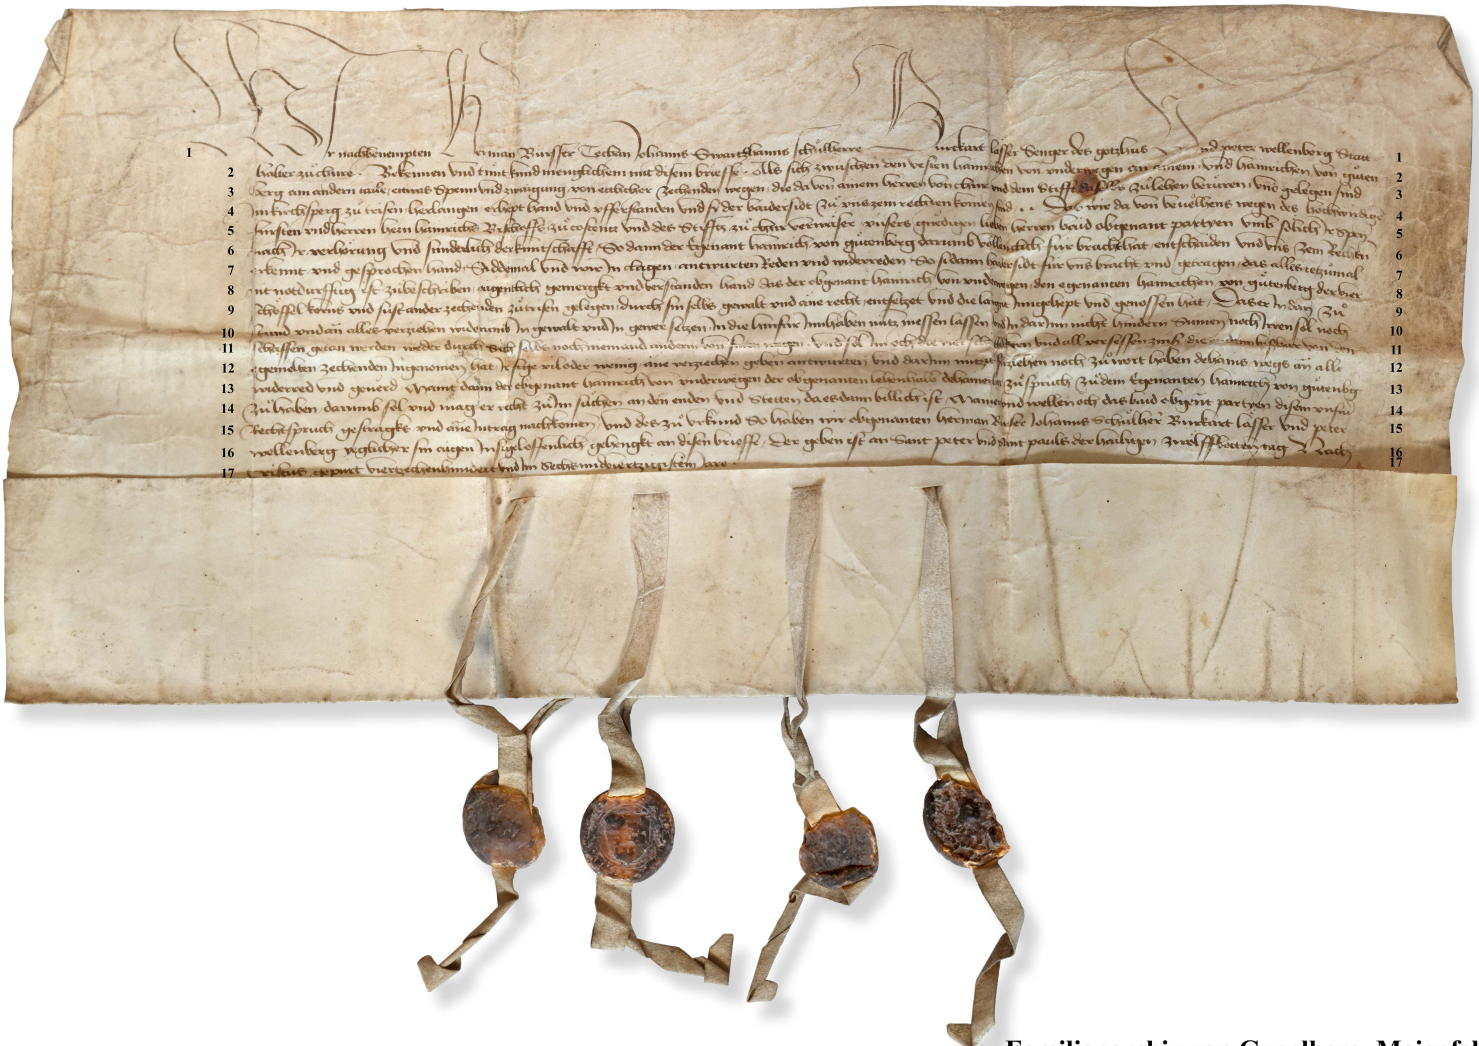 1 Wir nachbenempten Herman Burser Techan Johanns Swarthanns schuͦlherre Burckart lasser Senger des gotzhus Und peter wellenberg Statt 1
2 halter zu chure . Bekennen und tuͦnt kund menglichem mit disem brieffe . Alls sich zwuschen den vesten hainrichen von underwegen an ainem und hainrichen von guͦten 2
3 berg am andern taile, ettwas Spenn und zwaigung von ettlicher Zechenden wegen, die da von ainem herren von chur und dem Stifft daselbs zuͦ lehen berüren, und gelegen sind 3
4 Im kirchsperg zuͦ trisen herlangen erhept hand und ufferstanden und sy der baidersidt zuͦ uns zem rechten komen sind . . wie da von bevelhens wegen des hochwirdige 4
5 fürsten und herren hern hainrichs Bischoffe zuͦ costentz und des Stiffts zuͦ chur verwiser unsers gnedigen lieben herren baid obgenant partyen umb solich Ir Spen 5
6 nach Ir verhörung und sunderlich der kuntschafft So dann der Egenant hainrich von guͦtenberg darumb vollenclich für bracht hat, entschaiden und uns zem Rechten 6
7 erkennt und gesprochen hand, Siddemal und wir In clagen antwurten Reden und widerreden So si dann baidersidt für uns bracht und getragen, das alles yetzumal 7
8 nit notdurfftig ist zuͦ beschriben, aigentlich gemergkt und verstanden hand das der obgenant hainrich von underwegen, den egenanten hainrichen von guͦtenberg der vier 8
9 Schöffel korns und sust ander zechenden zuͦ trisen gelegen, durch sin selbs gewalt und ane recht, entsetzet und die lang Inngehept und genossen hat, Das er In dan zuͦ 9
10 stund und an alles verziehen widerumb In gewalt und In gewer setzen, In die hinfür Innhaben nutz niessen lassen und In dar Inn nicht hindern Sumen noch Irren sol noch 10
11 schaffen getan werden weder durch sich selbs noch niemand anderm von sinen wegen . und sol Im och die von den 11
12 egemelten zechenden Ingenomen hat, Es sye vil oder wenig, ane verziechen geben antwurten und dar Inn nutzit verziehen noch zuͦ wort haben dehains wegs an alle 12
13 widerred und geverd Maint dann der obgenant hainrich von underwegen der obgenanten lehenhalb dehainerlay zuͦ spruch zuͦ dem Egenanten hainrich von guͦtenbg 13
14 zuͦ haben, darumb sol und mag er recht zuͦ Im suͦchen an den enden und Stetten da es dann billich ist, Mainend und wellen och das baid obgent partyen disem unserm 14
15 Rechtspruch gestragks und ane intrag nachkomen, Und des zuͦ urkund So haben wir obgenanten herman Burser Johanns Schuͦlher Burckart lasser und peter 15
16 wellenberg yeglicher sin aigen Insigel offenlich gehengkt an disen brieffe, Der geben ist an Sant peter und Sant pauls der hailigen zwölffbotten tag Nach 16
17 Cristus gepurt viertzechenhundert und Im Sechs und viertzigistem Jare . 17